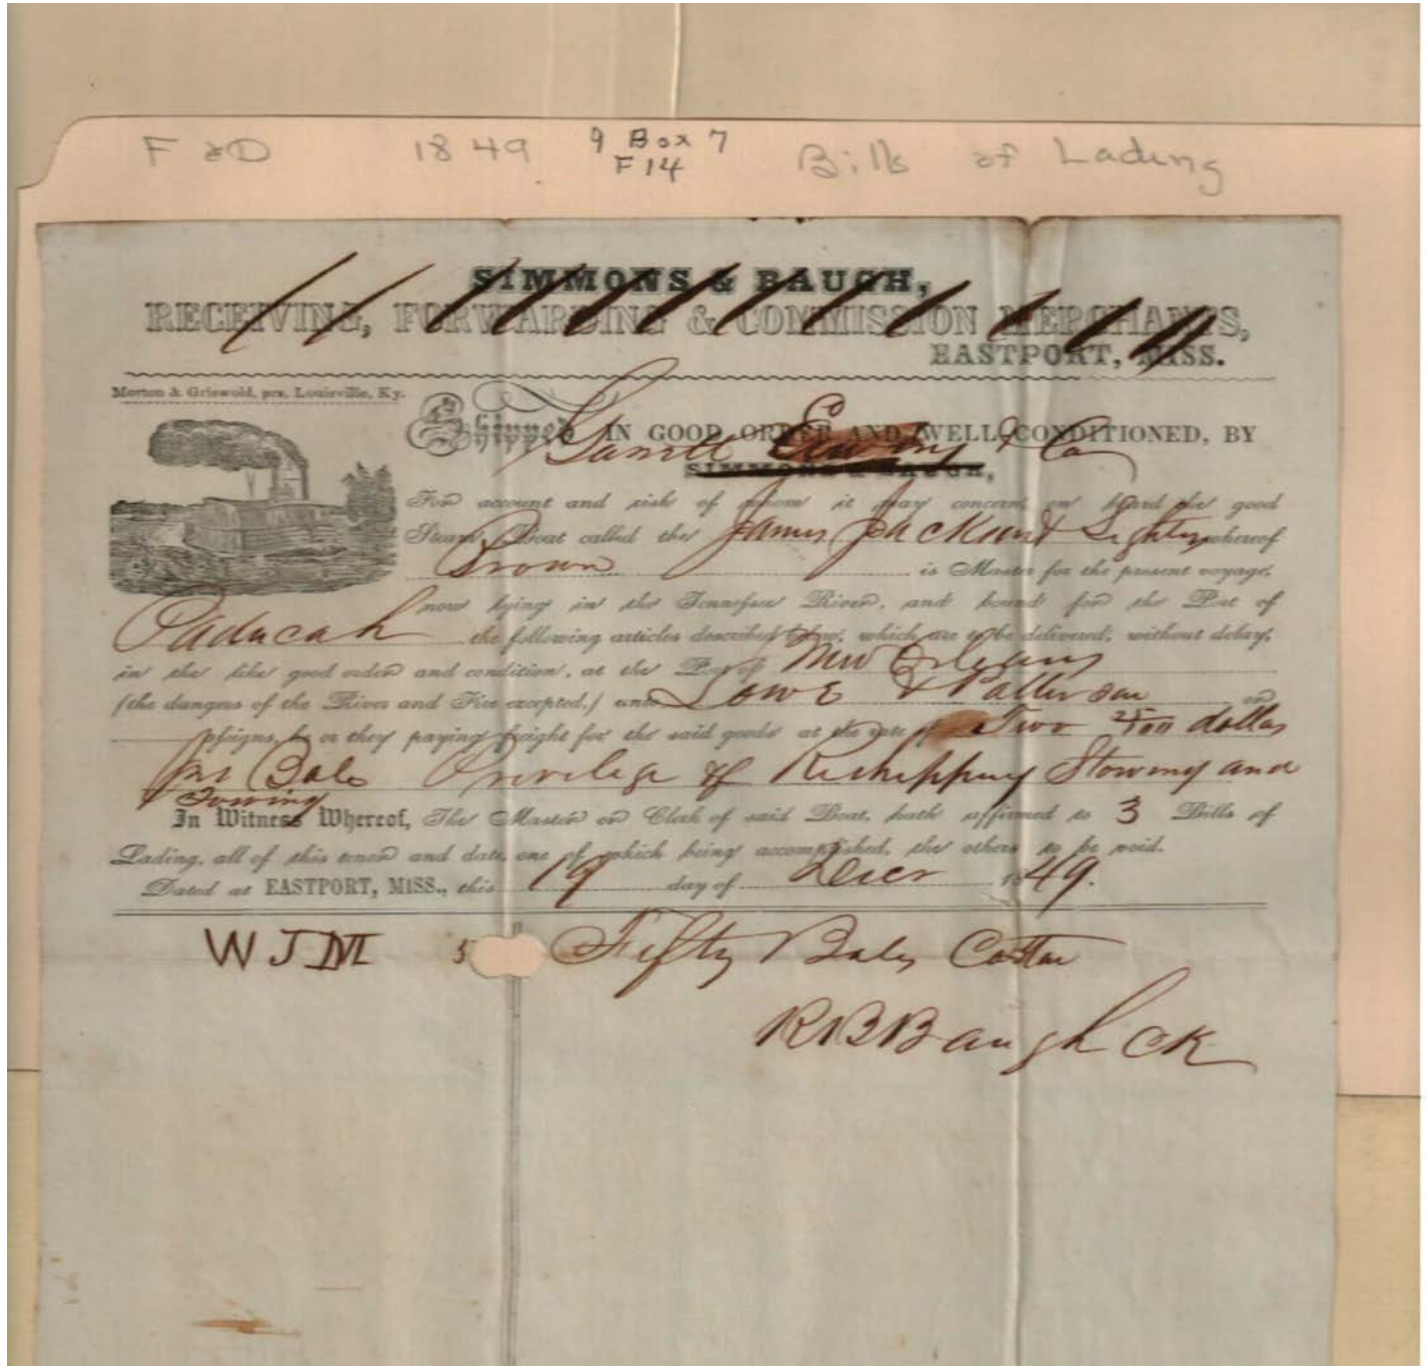 F & D 1849 9 Box 7 Bills of Lading
F 14
SIMMONS & BAUGH,
RECEIVING, FORWARDING & COMMISSION MERCHANTS,
EASTPORT, MISS.
Morton & Griswold, prs. Louisville, Ky.
Shipped IN GOOD ORDER AND WELL CONDITIONED, BY
Garrett & Co
SIMMONS & BAUGH,
For account and risk of whom it may concern, on board the good
Steam Boat called the James Jackson & Lighters whereof
Brown is Master for the present voyage,
now lying in the Tennessee River, and bound for the Port of
Paducah the following articles described below, which are to be delivered, without delay,
in the like good order and condition, at the Port of New Orleans
(the dangers of the River and Fire excepted,) unto Lowe & Patterson or
assigns, he or they paying freight for the said goods at the rate of Two 25/100 dollars
per Bale Privilege of Reshipping Stowing and
Towing
In Witness Whereof, The Master or Clerk of said Boat, hath affirmed to 3 Bills of
Lading, all of this tenor and date, one of which being accomplished, the others to be void.
Dated at EASTPORT, MISS., this 19 day of Decr 1849.
WJM 5 Fifty Bales Cotton
R B Baugh CK